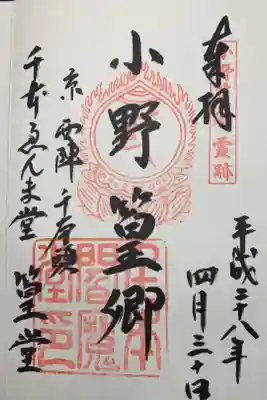 奉拝
小野篁卿
京 西陣 千本頭
千本ゑんま堂 篁堂
平成二十八年
四月三十日